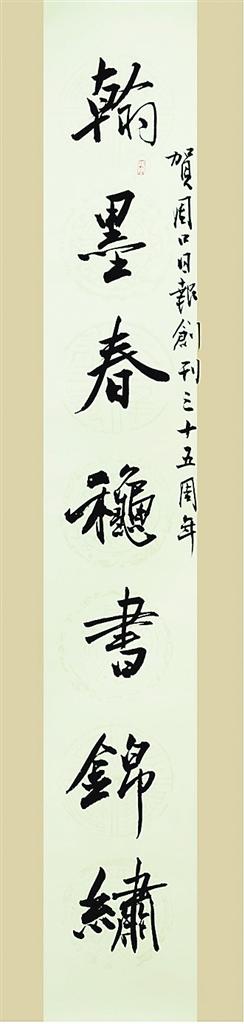 賀周口日報創刊三十五周年
翰墨春穐書錦繡